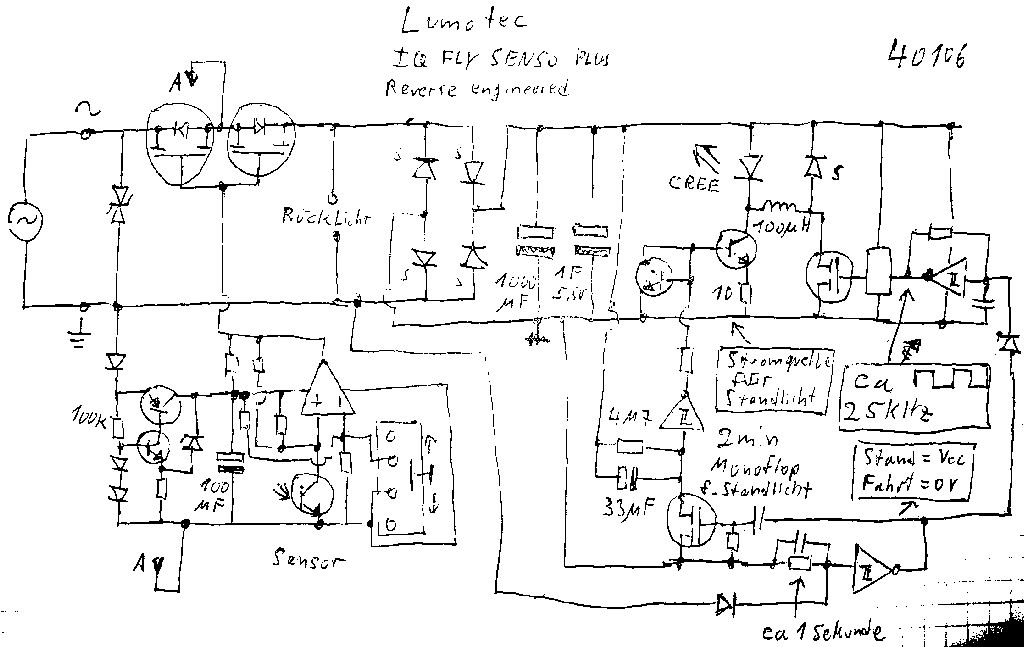 Lumotec
IQ FLY SENSO PLUS
Reverse engineered
40106
A
~
~
S
S
S
S
Rücklicht
1000
µF
1F
5,5V
CREE
100µH
S
10
Stromquelle
für
Standlicht
ca
25kHz
Stand = Vcc
Fahrt = 0V
4M7
2min
Monoflop
f. Standlicht
33µF
100K
100
µF
+
Sensor
A
ca 1 Sekunde